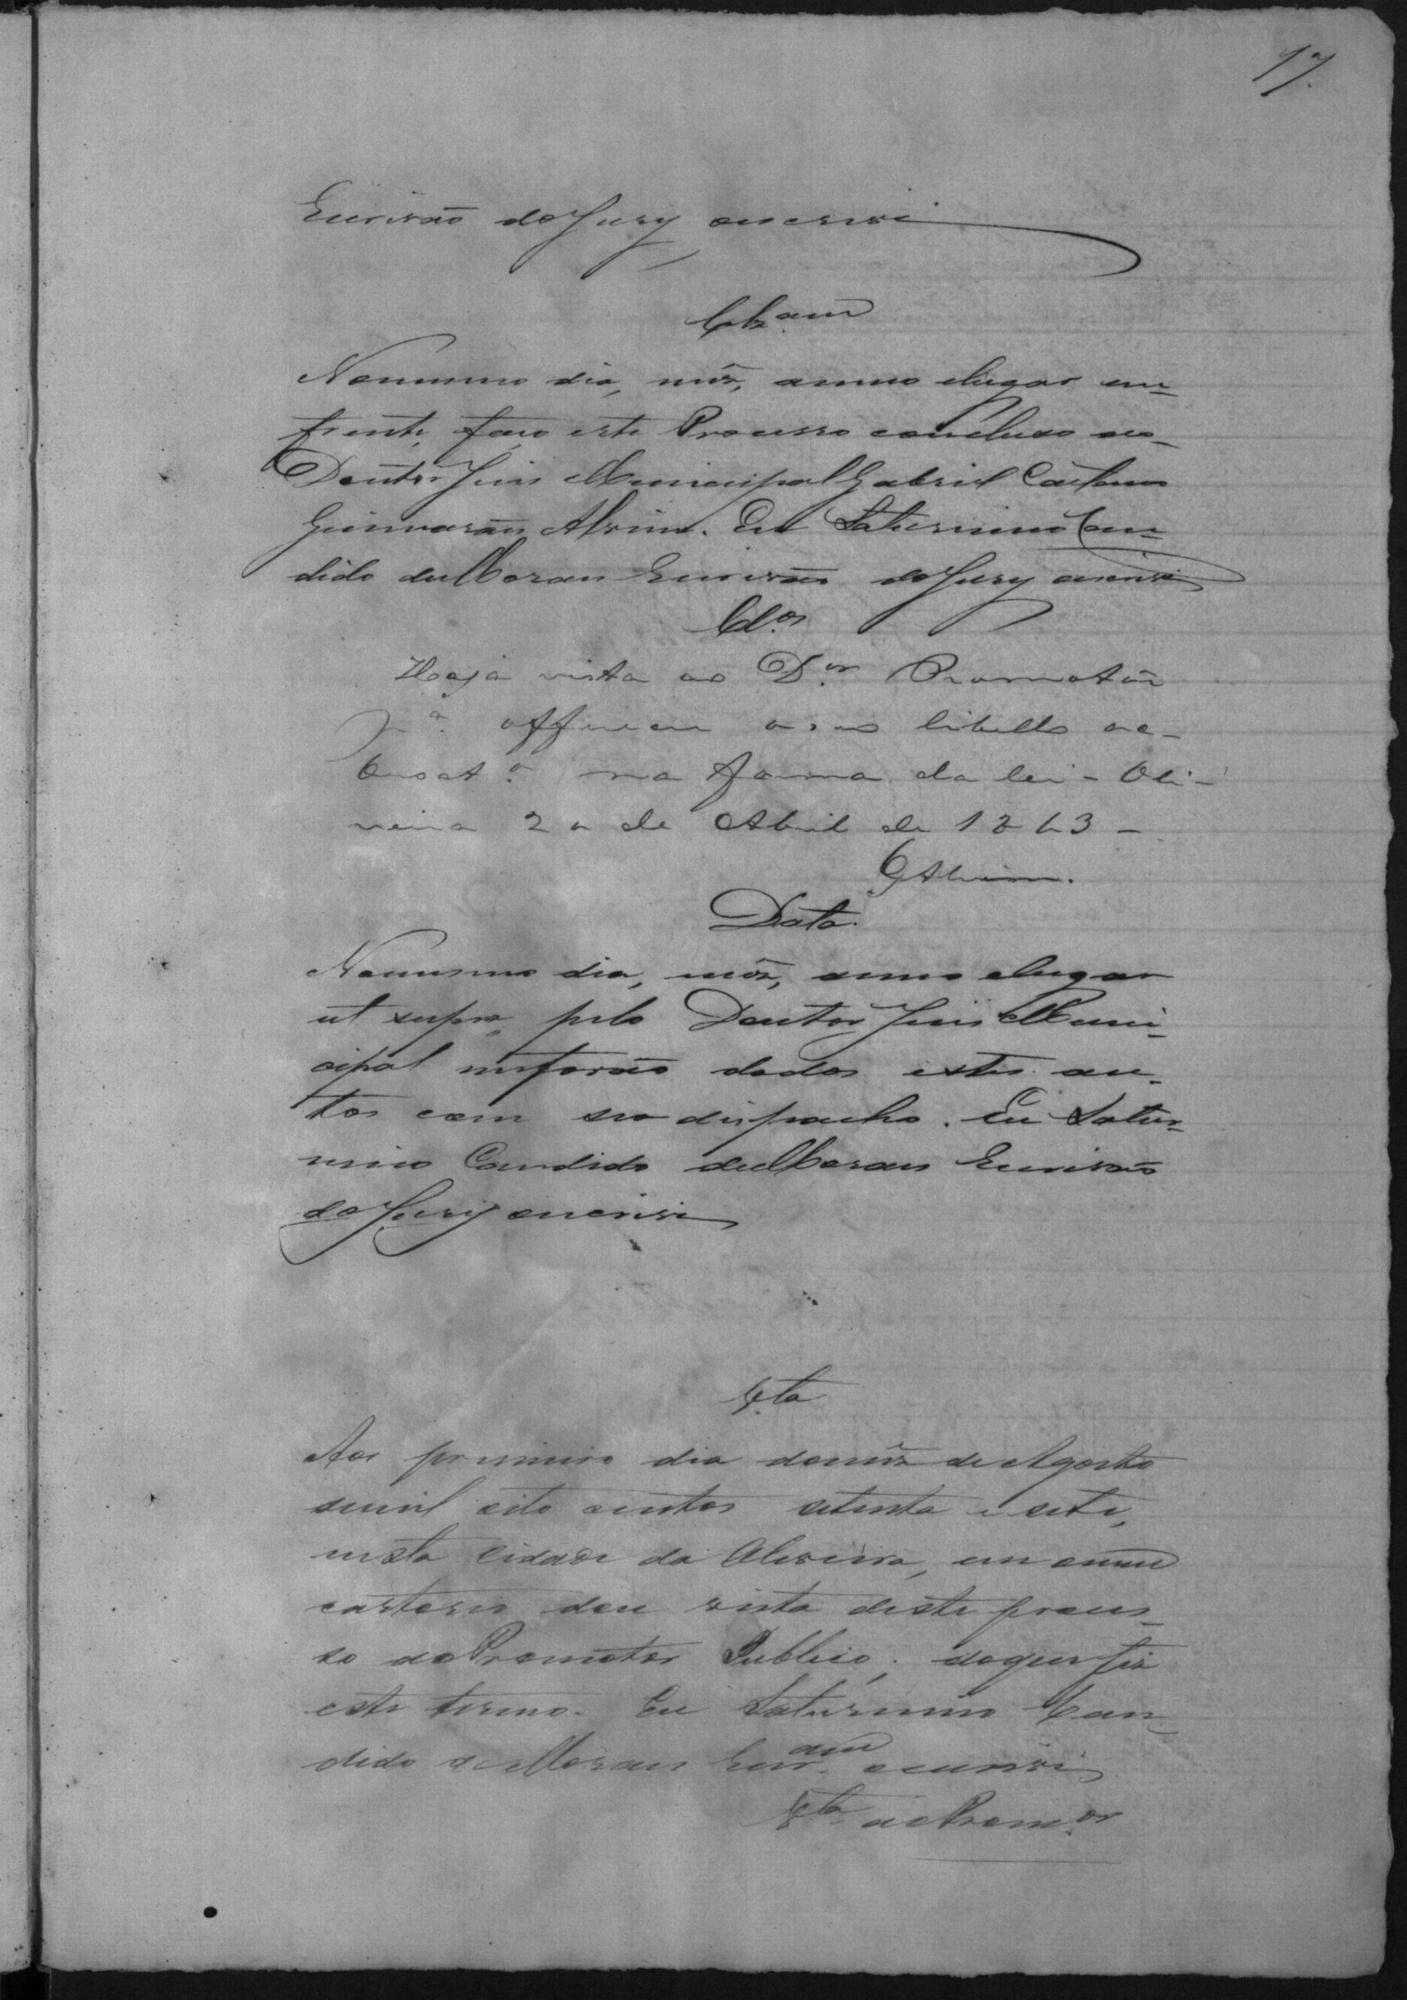 17.
Escrivão do Jury, o escrevi
Clz.am
No mesmo dia, mês, anno elugar em-
frente, faço este Processo concluso ao
Doutor Juis Municipal Gabriel Caetano
Guimarães Alvim. Eu Saturnino Can-
dido de Moraes Escrivão do Jury o escrevi
Cl.os
Haja vista ao D.or Promotor
p.a offerecer o seo libello ac-
cusat.o na forma da lei - Oli-
veira 20 de Abril de 1863 -
GAlvim.
Data.
No mesmo dia, mês, anno elugar
ut supra, pelo Doutor Juis Muni-
cipal me forão dados estes au-
tos com seo dispacho. Eu Satur-
nino Candido de Moraes Escrivão
do Jury o escrevi
V.ta
Aos primeiro dia do mês de Agosto
de mil oito centos setenta e sete,
nesta Cidade da Oliveira, em o meu
cartorio dou vista deste proces-
so ao Promotor Publico; do que fis
este termo. Eu Saturnino Can-
dido de Moraes Escr.am o escrevi
V.ta ao Prom.or